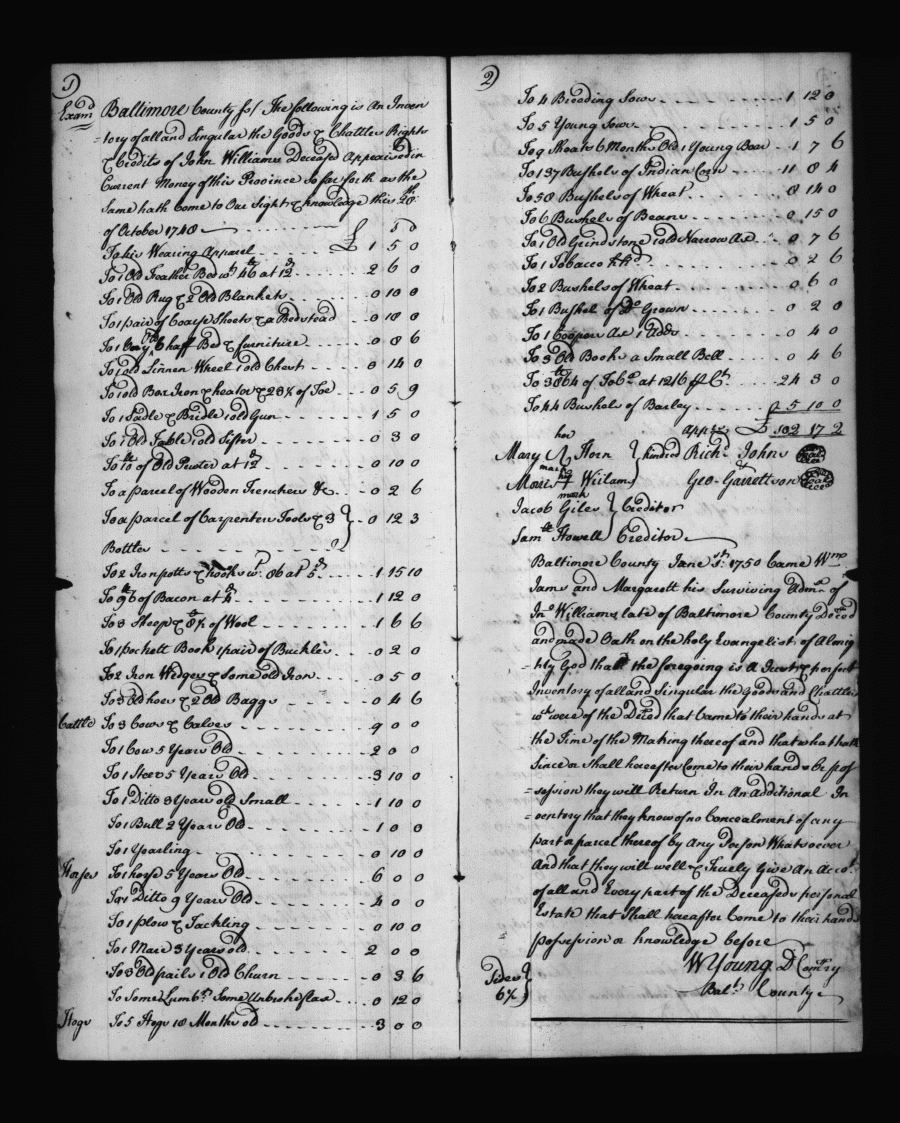 1
Exam^d Baltimore County ss/ The following is An Inven
=tory of all and Singular the Goods & Chattles Rights
& Credits of John Williams Deceased Appraised in
Current Money of this Province So far forth as the
Same hath Come to Our Sight & knowledge this 20^th
of October 1748 £ S D
To his Wearing Apparel £ 1 5 0
To 1 Old Feather Bed w^t 46^lb at 12^d 2 6 0
To 1 Old Rug & 2 Old Blankets 0 10 0
To 1 pair of Coarse Sheets & a Bedstead 0 18 0
To 1 Chaff Bed & furniture 0 8 6
To 1 old Linnen Wheel 1 old Chest 0 14 0
To 1 old Box Iron & heater & 23½ of 0 5 9
To 1 Sadle & Bridle 1 old Gun 1 5 0
To 1 Old Table 1 old Sifter 0 3 0
To 10^lb of Old Pewter at 12^d 0 10 0
To a parcel of Wooden Trenchers &c 0 2 6
To a parcel of Carpenters Tools & 3 } 0 12 3
Bottles
To 2 Iron potts & hooks w^t 86 at 5^d 1 15 10
To 96^lb of Bacon at 4^d 1 12 0
To 3 Sheep & 8½^lb of Wool 1 6 6
To 1 pockett Book 1 pair of Buckles 0 2 0
To 2 Iron Wedges & Some old Iron 0 5 0
To 3 Old hoes & 2 Old Baggs 0 4 6
Cattle To 3 Cows & Calves 9 0 0
To 1 Cow 5 Years Old 2 0 0
To 1 Steer 5 Years Old 3 10 0
To 1 Ditto 3 Years old Small 1 10 0
To 1 Bull 2 Years Old 1 0 0
To 1 Yearling 0 10 0
Horses To 1 horse 5 Years Old 6 0 0
To 1 Ditto 9 Years Old 4 0 0
To 1 plow & Tackling 0 10 0
To 1 Mare 3 Years old 2 0 0
To 3 Old pails 1 Old Churn 0 3 6
To Some Lumb^r Some Unbroke flax 0 12 0
Hogs To 5 Hogs 18 Months old 3 0 0
2
To 4 Breeding Sows 1 12 0
To 5 Young Sows 1 5 0
To 9 Shoats 6 Months Old 1 Young Boar 1 7 6
To 137 Bushels of Indian Corn 11 8 4
To 58 Bushels of Wheat 8 14 0
To 6 Bushels of Beans 0 15 0
To 1 Old Grindstone 1 old Narrow Ax 0 7 6
To 1 Tobacco hh^d 0 2 6
To 2 Bushels of Wheat 0 6 0
To 1 Bushel of D^o Grown 0 2 0
To 1 Coopers Ax 1 Adds 0 4 0
To 3 Old Books a Small Bell 0 4 6
To 3864^lb of Tob^o at 12/6 p C^t 24 3 0
To 44 Bushels of Barley 5 10 0
£ 102 17 2
her
Mary Horn } kindred Rich^d Johns
mark
Morris Wiliams Geo. Garrettson
mark
Jacob Giles } Creditor
Sam^ll Howell Creditor
Baltimore County Jan^e 1750 Came W^m
Iams and Margarett his Surviving Adm^x of
Jn^o Williams late of Baltimore County Deced
and made Oath on the holy Evangelist of Almig
=hty God that the foregoing is a Just & perfect
Inventory of all and Singular the Goods and Chattles
w^ch were of the Deced that Came to their hands at
the Time of the Making thereof and that what hath
Since or Shall hereafter Come to their hands or pos
=session they will Return In An Additional In
=ventory that they know of no Concealment of any
part or parcel thereof by Any Person Whatsoever
And that they will well & Truely Give An Acco^t
of all and Every part of the Deceaseds personal
Estate that Shall hereafter Come to their hands
possession or knowledge before
W Young D Comry
Balt^o County
Sides }
6½